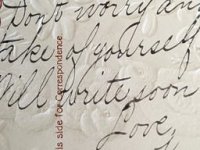 Dont worry and
take of yourself
Will Write soon
Love,
is side for Correspondence